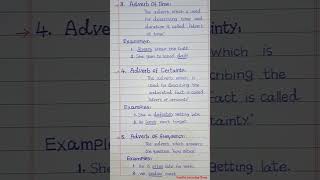 3. Adverb of Time:
The adverb which is used
for describing time and
duration is called 'Adverb
of time'.
Examples:
1. Always speak the truth.
2. She goes to school daily.
4. Adverb of Certainty:
The adverb which is
used for describing the
understood fact is called
'Adverb of certainty'.
Examples:
1. She is definitely getting late.
2. He surely meet
5. Adverb of Frequency:
The adverb which answers
the question 'how often'.
Examples:
1. He is often late for work.
2. We seldom meet them.
4. Adve
Example
1. She
which is
cribing the
fact is called
ainty'.
getting late.